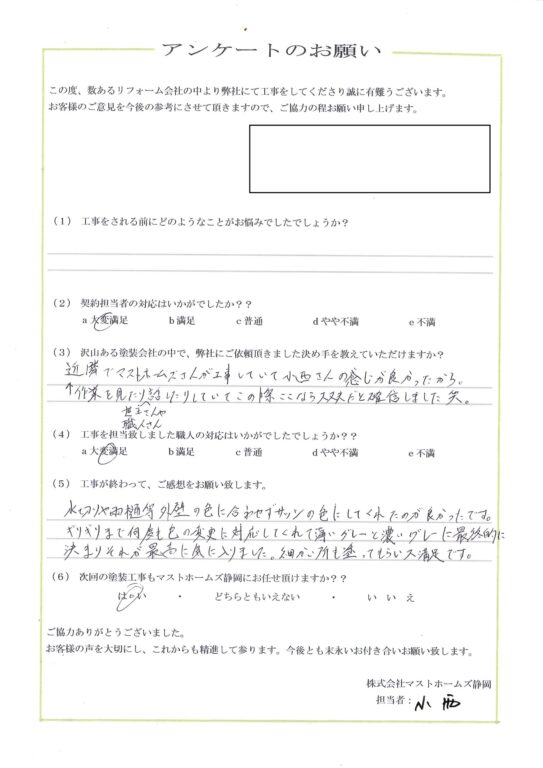 アンケートのお願い
この度、数あるリフォーム会社の中より弊社にて工事をしてくださり誠に有難うございます。
お客様のご意見を今後の参考にさせて頂きますので、ご協力の程お願い申し上げます。
(1) 工事をされる前にどのようなことがお悩みでしたでしょうか?
(2) 契約担当者の対応はいかがでしたか??
a 大変満足 b 満足 c 普通 d やや不満 e 不満
(3) 沢山ある塗装会社の中で、弊社にご依頼頂きました決め手を教えていただけますか?
近隣でマストホームズさんが工事していて小西さんの感じが良かったから。
↑作業を見たり話したりしていてこの際ここなら大丈夫だと確信しました 笑。
職人さん
(4) 工事を担当致しました職人の対応はいかがでしたでしょうか?
a 大変満足 b 満足 c 普通 d やや不満 e 不満
(5) 工事が終わって、ご感想をお願い致します。
水切りや雨樋等外壁の色に合わせずサッシの色にしてくれたのが良かったです。
ギリギリまで何度も色の変更に対応してくれて薄いグレーと濃いグレーに最終的に
決まりそれが最高に気に入りました。細かい所も塗ってもらい大満足です。
(6) 次回の塗装工事もマストホームズ静岡にお任せ頂けますか??
はい ・ どちらともいえない ・ いいえ
ご協力ありがとうございました。
お客様の声を大切にし、これからも精進して参ります。今後とも末永いお付き合いお願い致します。
株式会社マストホームズ静岡
担当者：小西